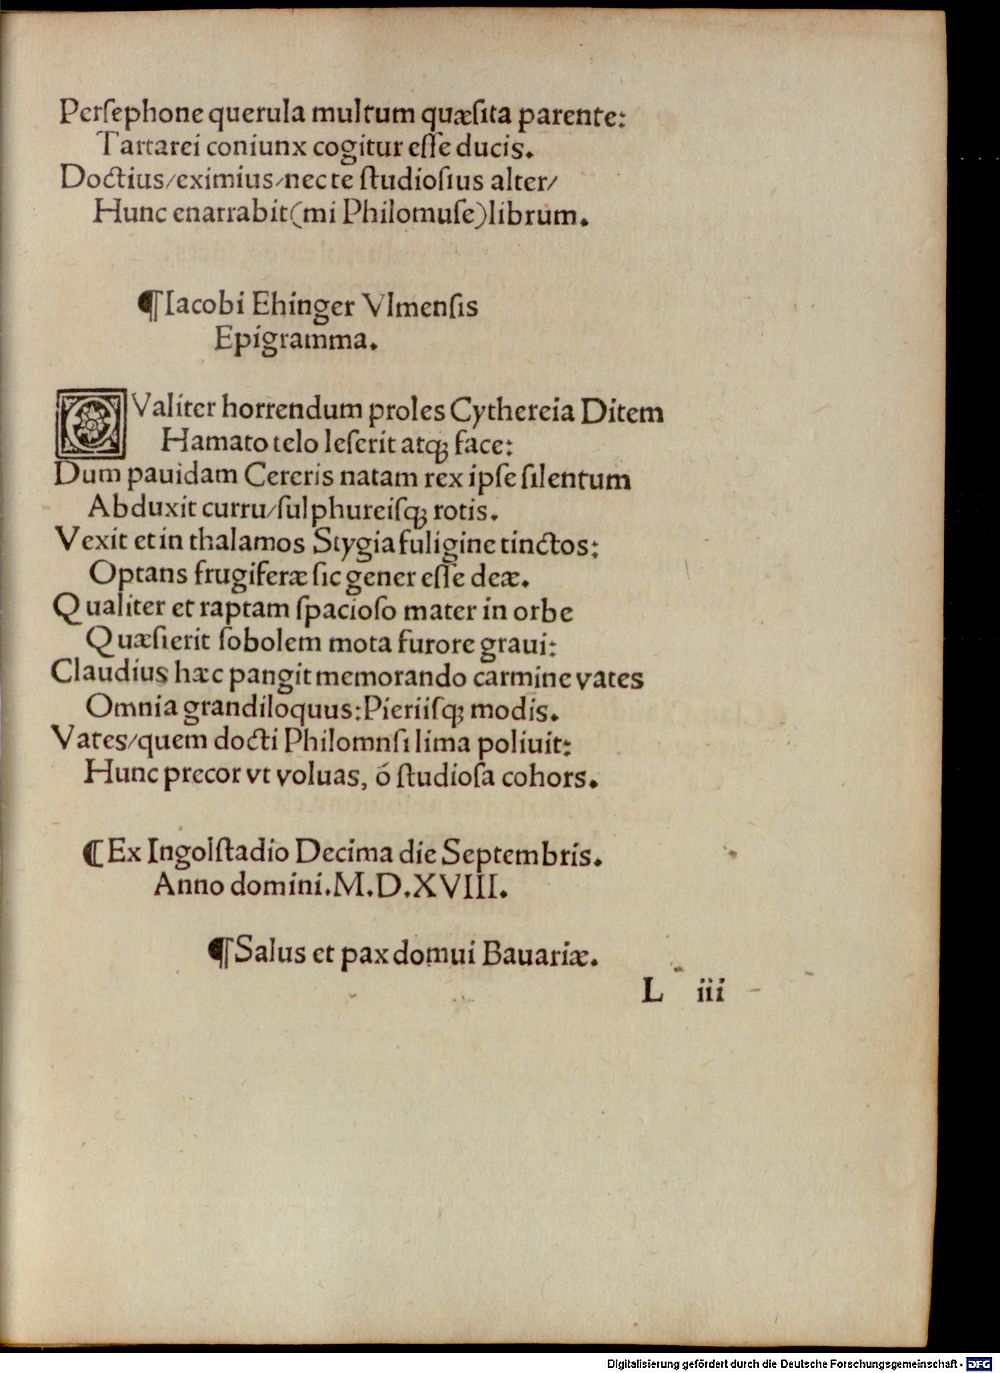 Perſephone querula multum quæſita parente:
Tartarei coniunx cogitur eſſe ducis.
Doctius/eximius/nec te ſtudioſius alter/
Hunc enarrabit(mi Philomuſe)librum.
¶Iacobi Ehinger Vlmenſis
Epigramma.
QValiter horrendum proles Cythereia Ditem
Hamato telo leſerit atqꝫ face:
Dum pauidam Cereris natam rex ipſe ſilentum
Abduxit curru/ſulphureiſqꝫ rotis.
Vexit et in thalamos Stygia fuligine tinctos:
Optans frugiferæ ſic gener eſſe deæ.
Qualiter et raptam ſpacioſo mater in orbe
Quæſierit ſobolem mota furore graui:
Claudius hæc pangit memorando carmine vates
Omnia grandiloquus:Pieriiſqꝫ modis.
Vates/quem docti Philomnſi lima poliuit:
Hunc precor vt voluas, ó ſtudioſa cohors.
¶Ex Ingolſtadio Decima die Septembris.
Anno domini.M.D.XVIII.
¶Salus et pax domui Bauariæ.
L iii
Digitalisierung gefördert durch die Deutsche Forschungsgemeinschaft - DFG